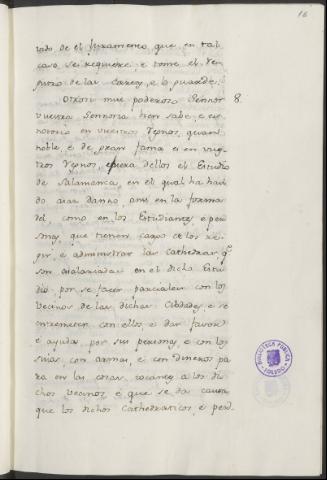 16
todo de el juramento que en tal
caso se requiere, e tome el re-
gistro de las cartas, e lo guarde.
Otrosi mui poderoso Sennor 8.
vuestra Sennoria bien sabe, e es
notorio en vuestros regnos, quant
noble, e de gran fama es en vues-
tros regnos, e fuera dellos el Estudio
de Salamanca, en el qual ha havi-
do asaz danno, ansi en la forma
del, como en los Estudiantes, e per-
sonas, que tienen cargo de los re-
gir, e administrar las cathedras q.e
son asalariadas en el dicho Estu-
dio por se facer parciales con los
vecinos de la dicha Cibdad, e se
entremeter con ellos, e dar favor
e ayuda por sus personas, e con los
suios, con armas, e con dineros pa
ra en las cosas, tocantes a los di-
chos vecinos, e que se da causa
que los dichos Cathedraticos, e per-
BIBLIOTECA PUBLICA
TOLEDO